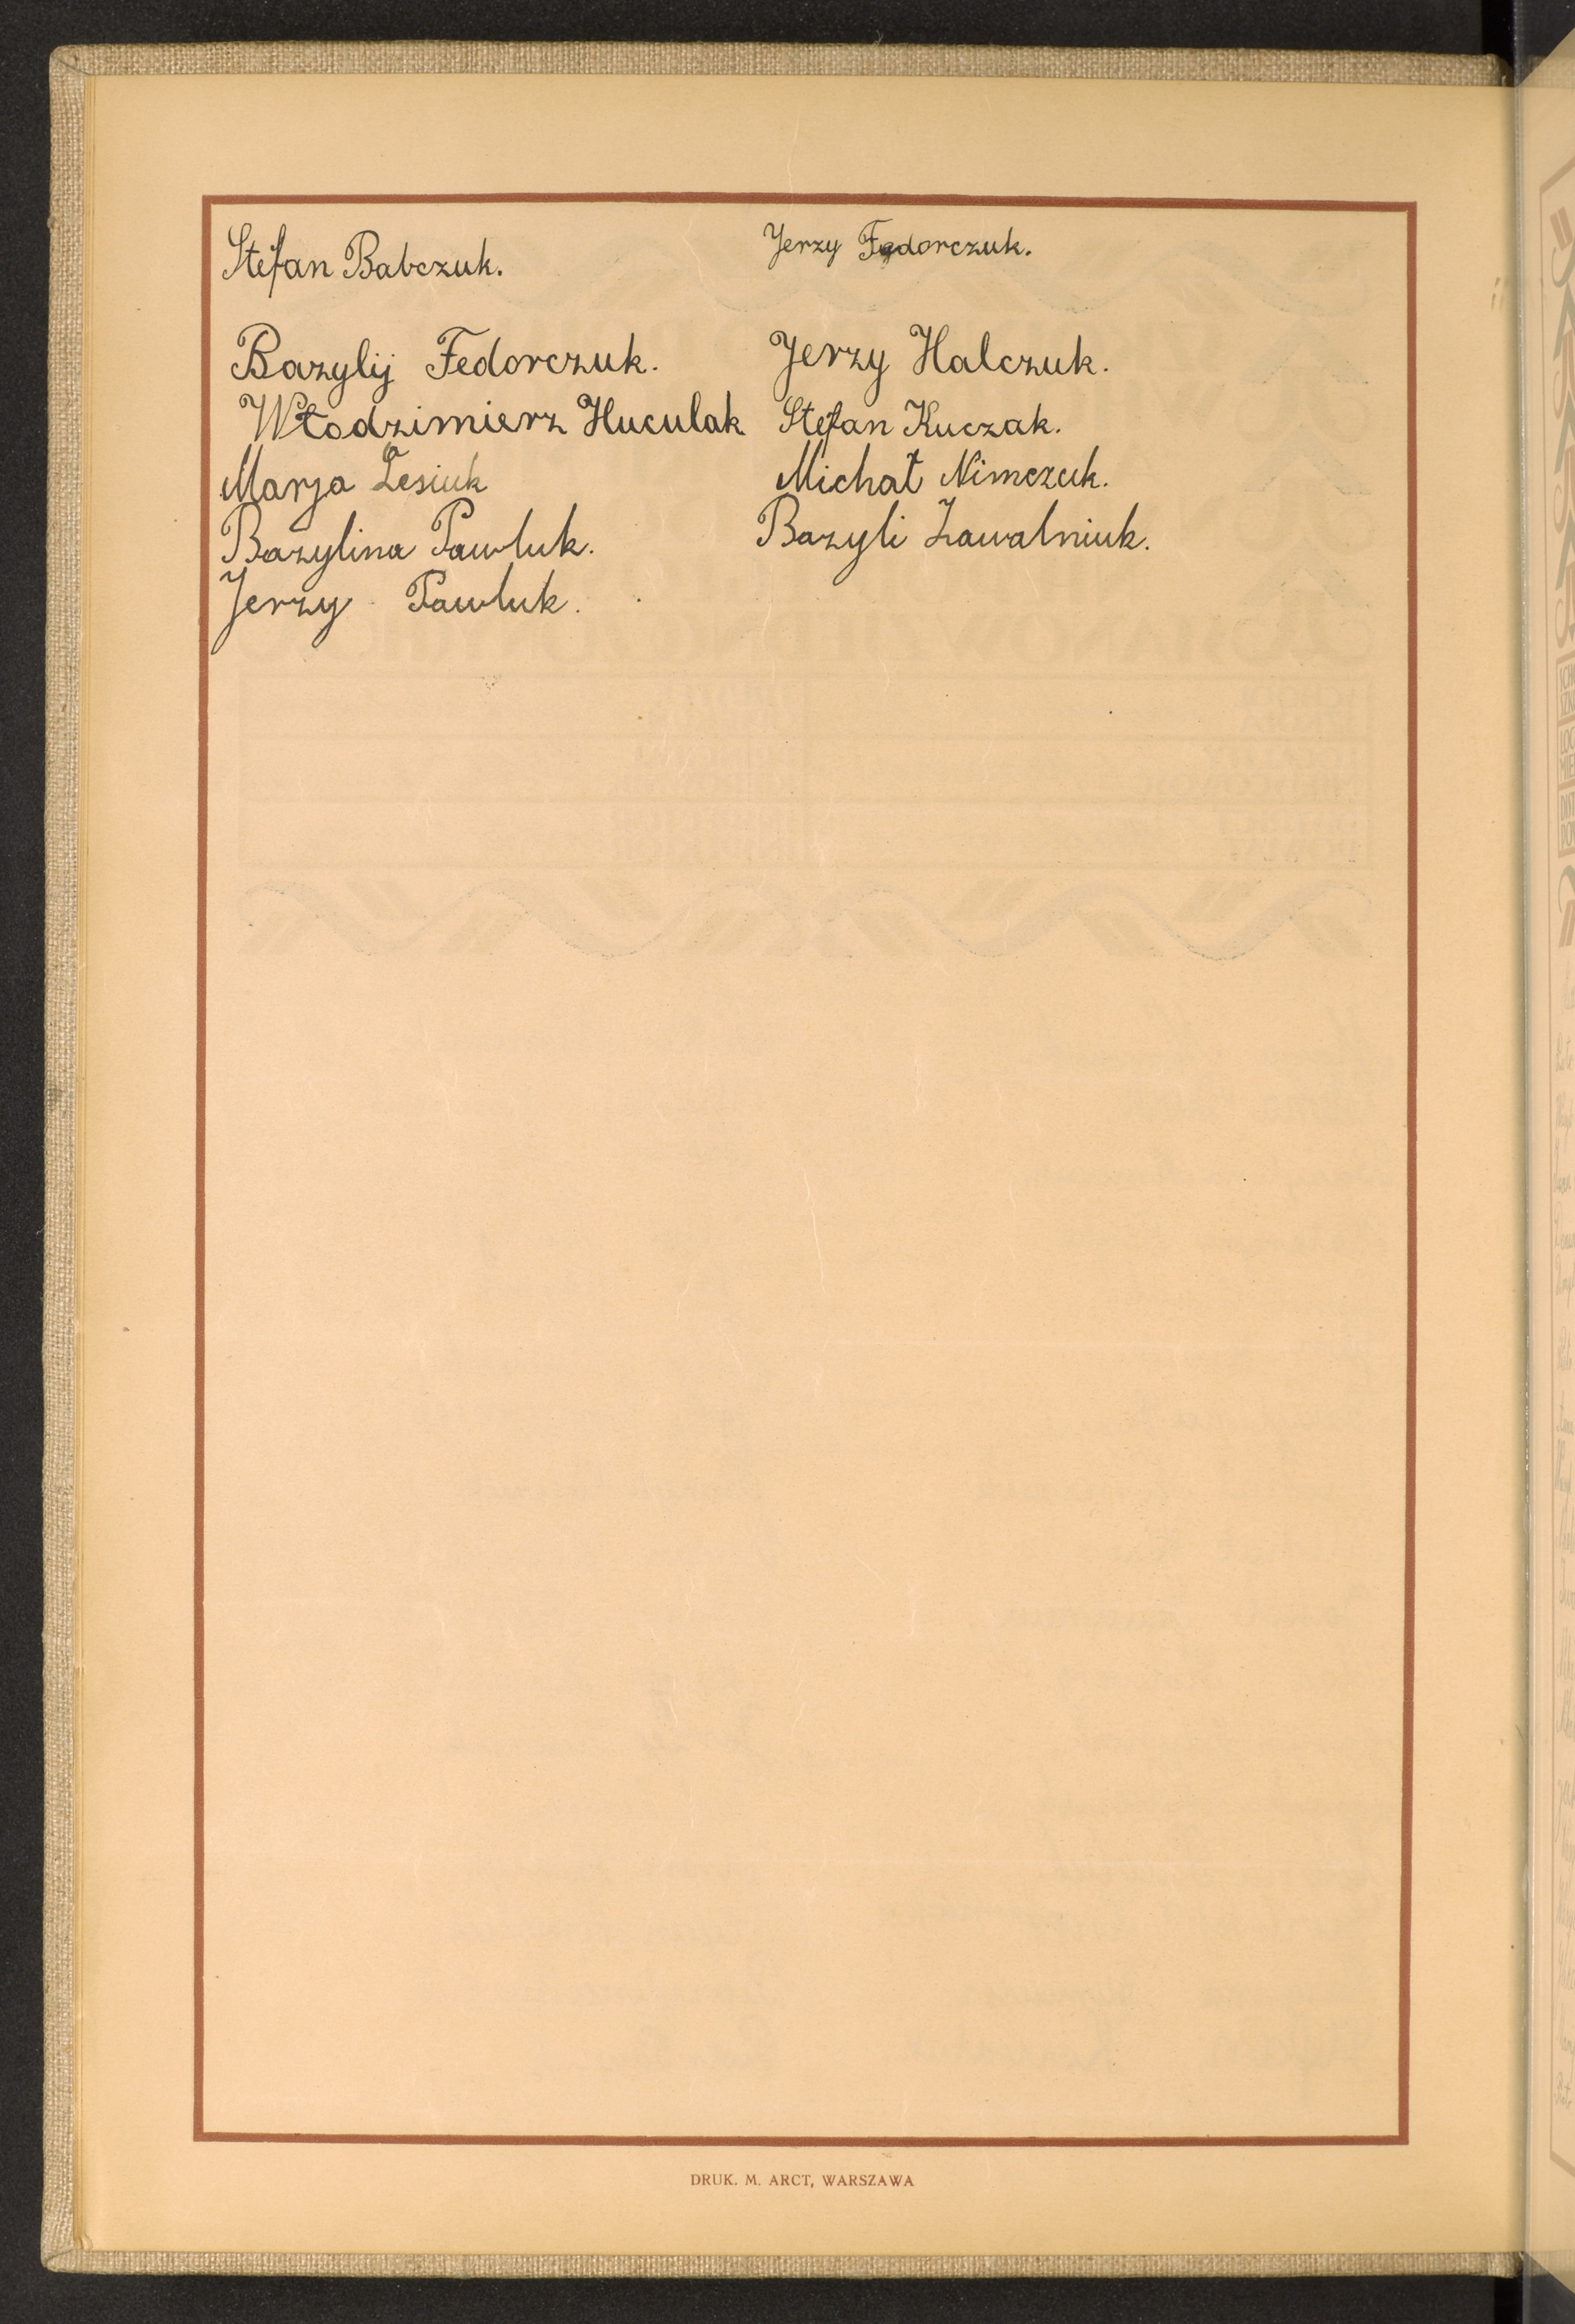 Stefan Babczuk.
Bazylij Fedorczuk.
Włodzimierz Huculak
Marja Lesiuk
Bazylina Pawluk.
Jerzy Pawluk.
Jerzy Fedorczuk.
Jerzy Halczuk.
Stefan Kuczak.
Michał Nimczuk.
Bazyli Zawalniuk.
DRUK. M. ARCT, WARSZAWA